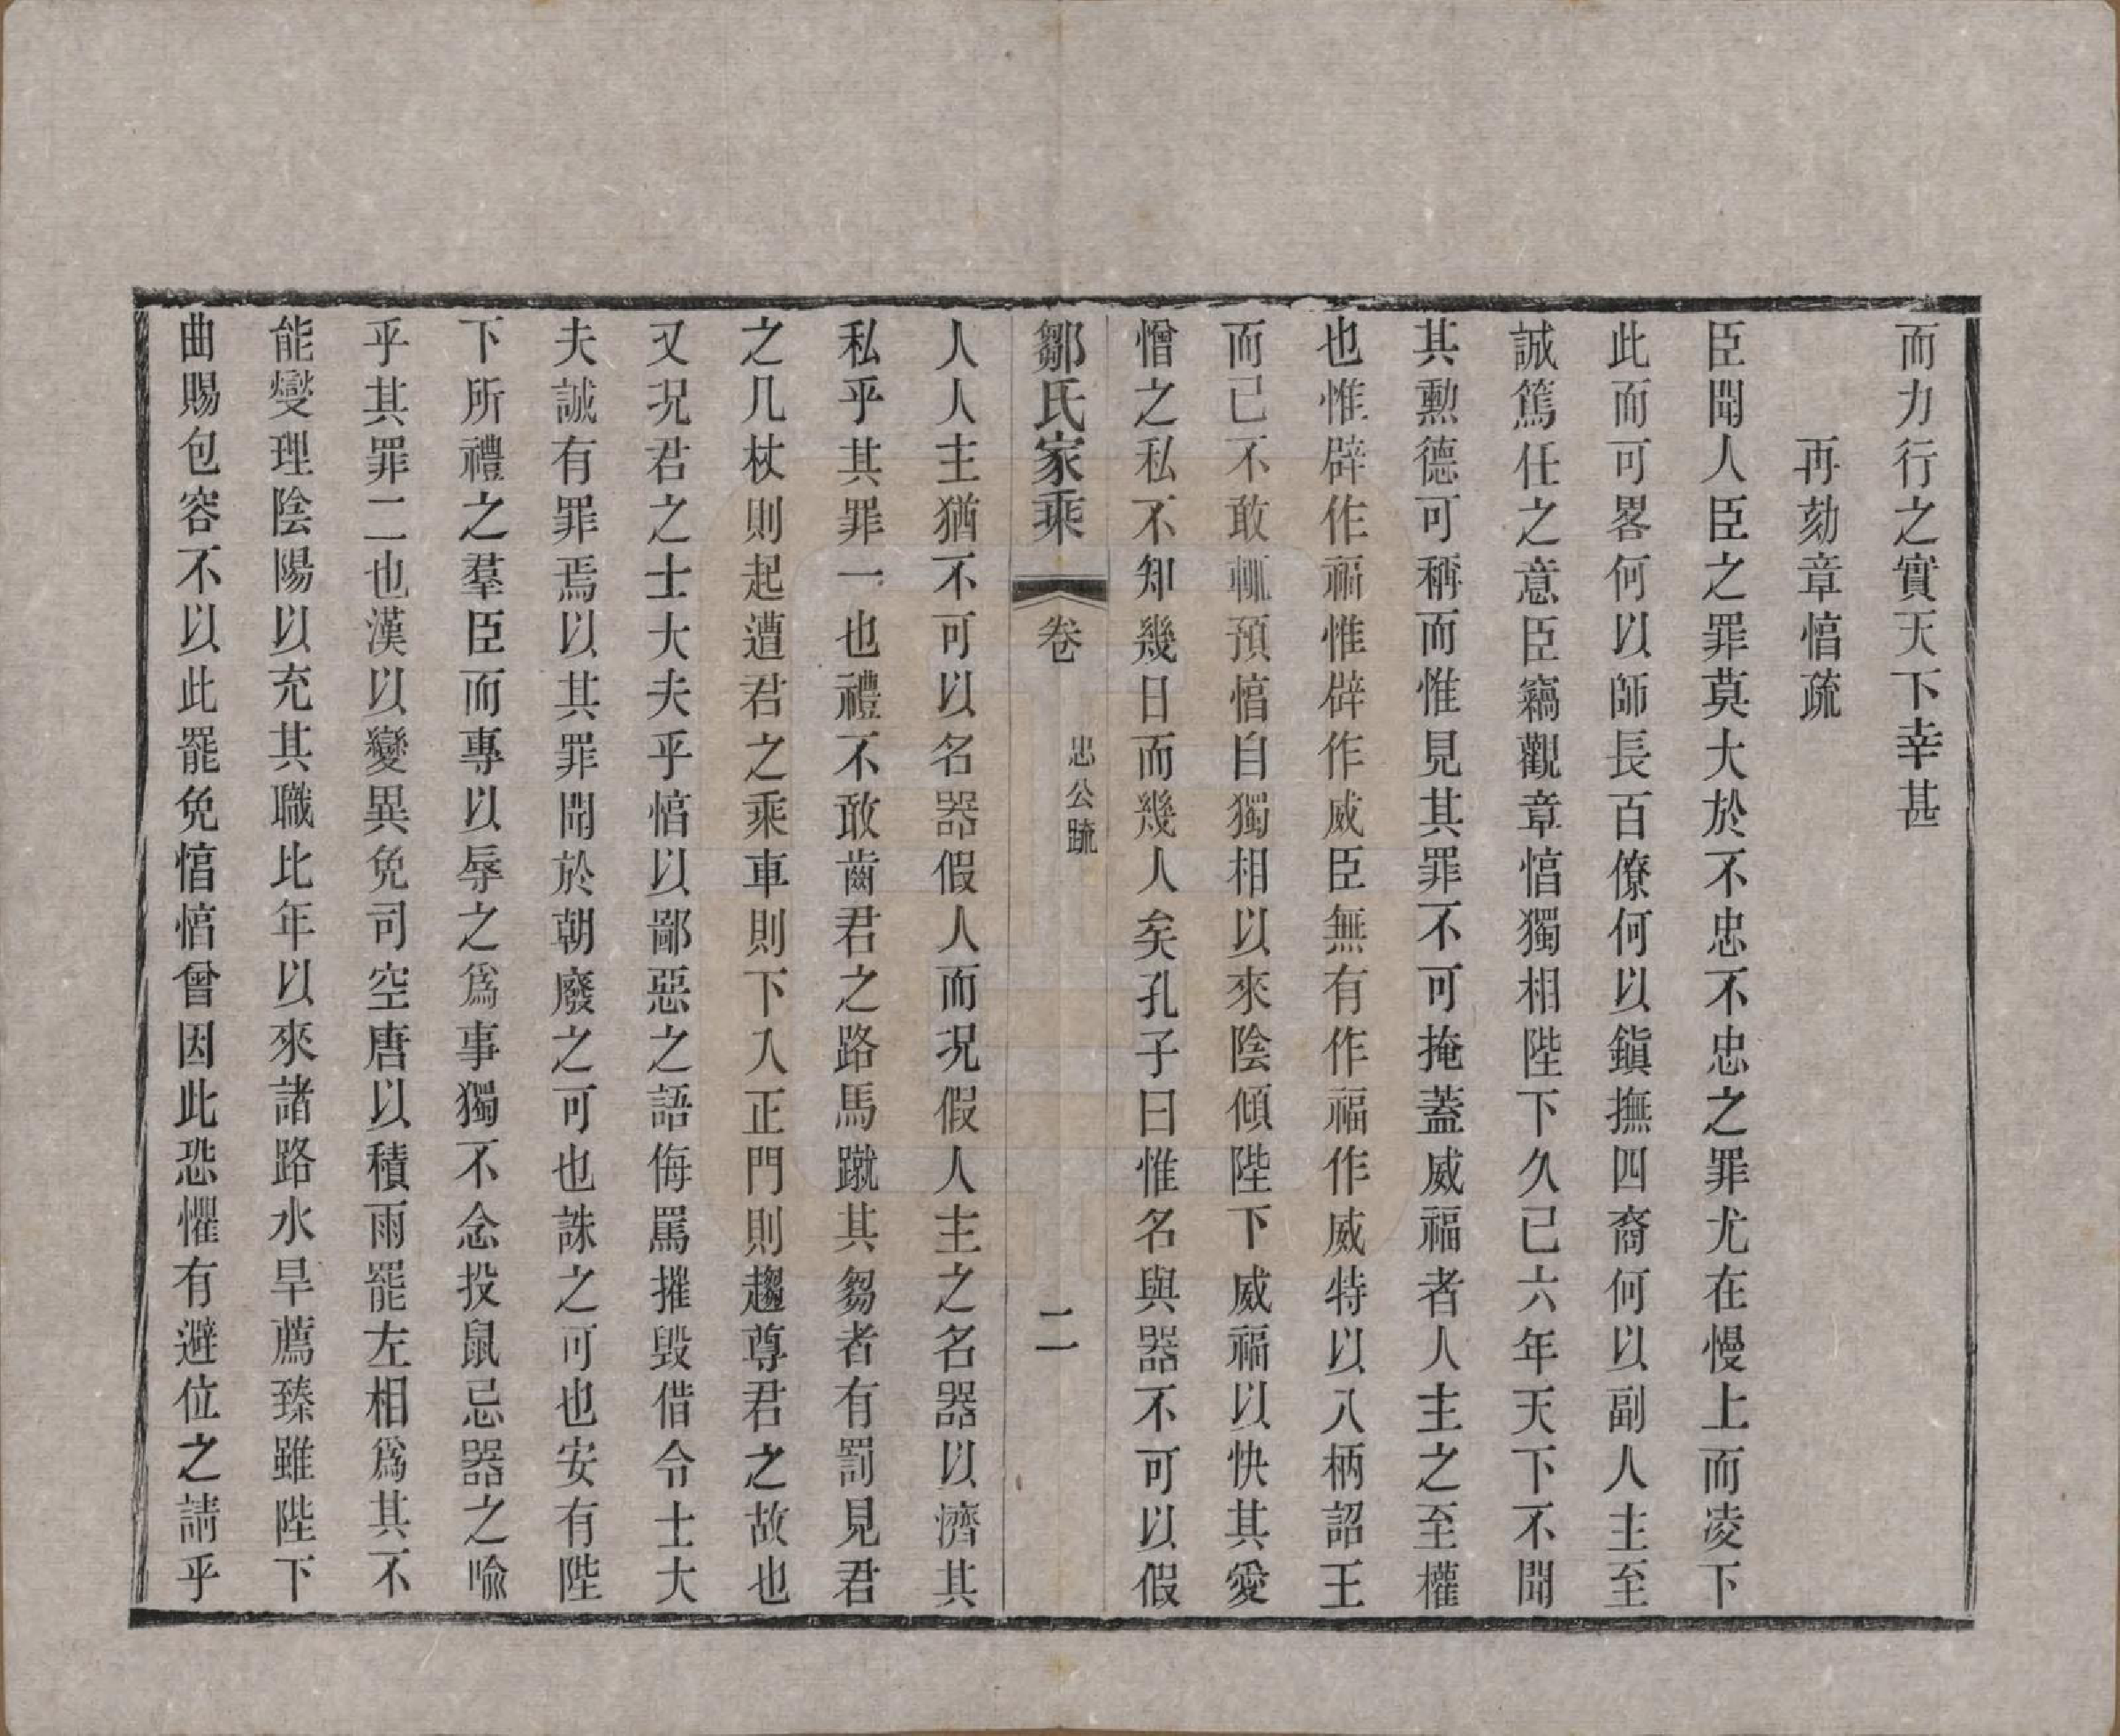 而力行之實天下幸甚
再劾章惇疏
臣聞人臣之罪莫大於不忠不忠之罪尤在慢上而凌下
此而可畧何以師長百僚何以鎭撫四裔何以副人主至
誠篤任之意臣竊觀章惇獨相陛下久已六年天下不聞
其勳德可稱而惟見其罪不可掩蓋威福者人主之至權
也惟辟作福惟辟作威臣無有作福作威特以八柄詔王
而已不敢輒預惇自獨相以來陰傾陛下威福以快其愛
憎之私不知幾日而幾人矣孔子曰惟名與器不可以假
鄒氏家乘 卷 忠公疏 二
人人主猶不可以名器假人而況假人主之名器以濟其
私乎其罪一也禮不敢齒君之路馬蹴其芻者有罰見君
之几杖則起遭君之乘車則下入正門則趨尊君之故也
又況君之士大夫乎惇以鄙惡之語侮罵摧毀借令士大
夫誠有罪焉以其罪聞於朝廢之可也誅之可也安有陛
下所禮之羣臣而專以辱之爲事獨不念投鼠忌器之喻
乎其罪二也漢以變異免司空唐以積雨罷左相爲其不
能燮理陰陽以充其職比年以來諸路水旱薦臻雖陛下
曲賜包容不以此罷免惇惇曾因此恐懼有避位之請乎